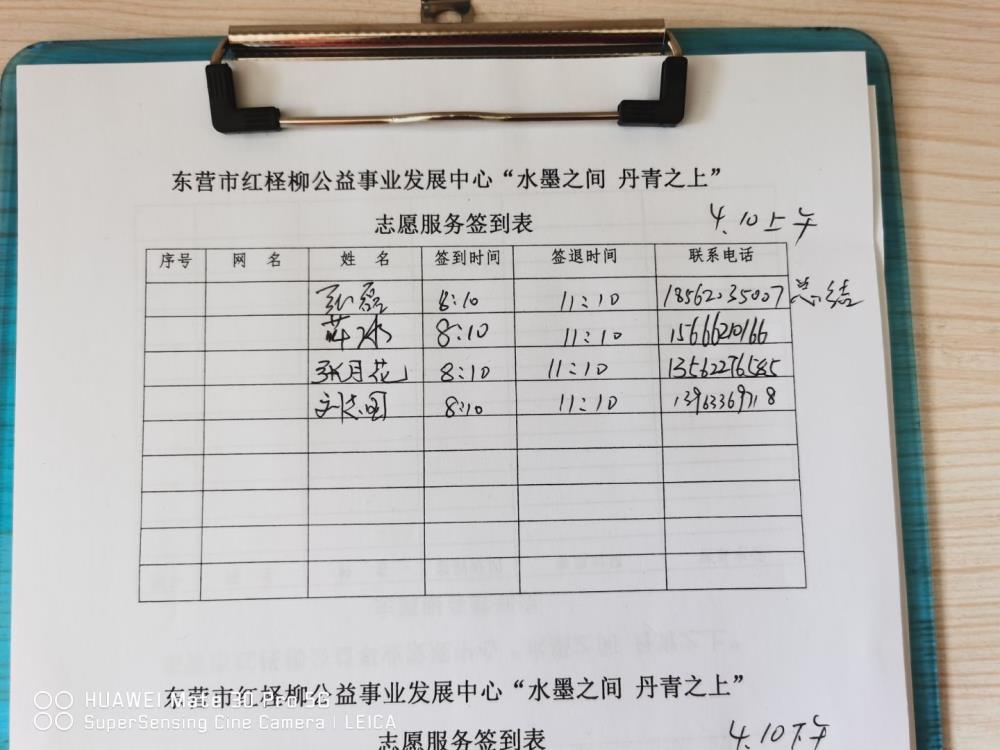 东营市红柽柳公益事业发展中心“水墨之间 丹青之上”
志愿服务签到表 4.10上午
序号 网 名 姓 名 签到时间 签退时间 联系电话
张磊 8:10 11:10 18562035007 总结
薛冰 8:10 11:10 15666210166
张月花 8:10 11:10 13562276585
刘志国 8:10 11:10
东营市红柽柳公益事业发展中心“水墨之间 丹青之上”
HUAWEI Mate 30 Pro 5G
SuperSensing Cine Camera | LEICA
志愿服务签到表 4.10下午